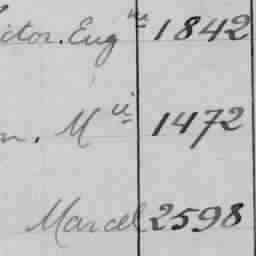 ictor. Eug ne 1842
n. M ie 1472
Marcel 2598